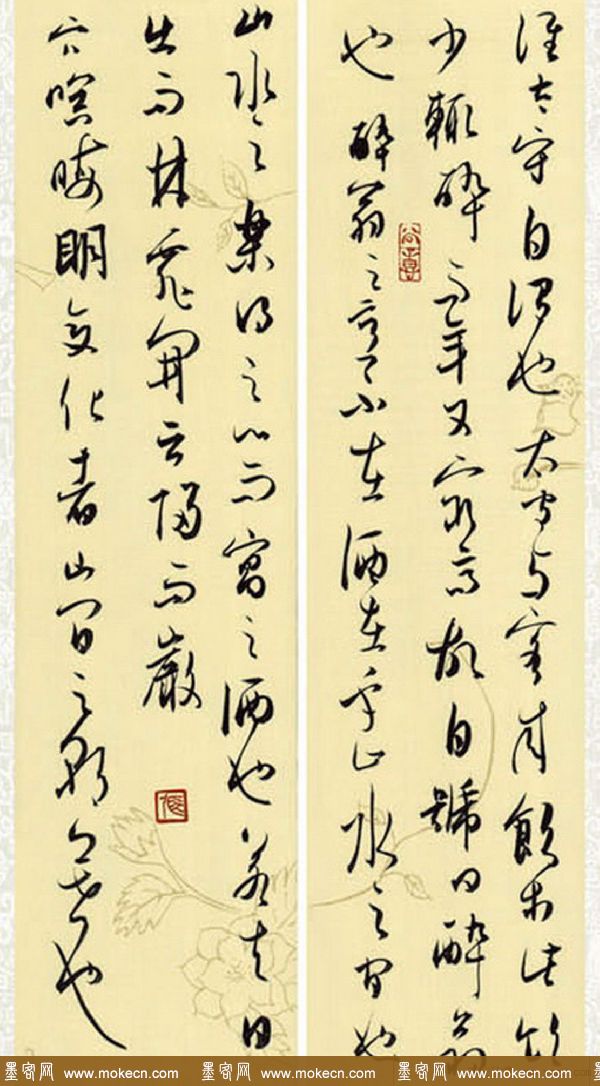 誰太守自謂也太守与客来飲於此飲
少輒醉而年又最高故自號曰醉翁
也醉翁之意不在酒在乎山水之間也
山水之樂得之心而寓之酒也若夫日
出而林霏開雲歸而巖
穴暝晦明變化者山間之朝暮也
墨客网 www.mokecn.com 墨客网 www.mokecn.com 墨客网 www.mokecn.com